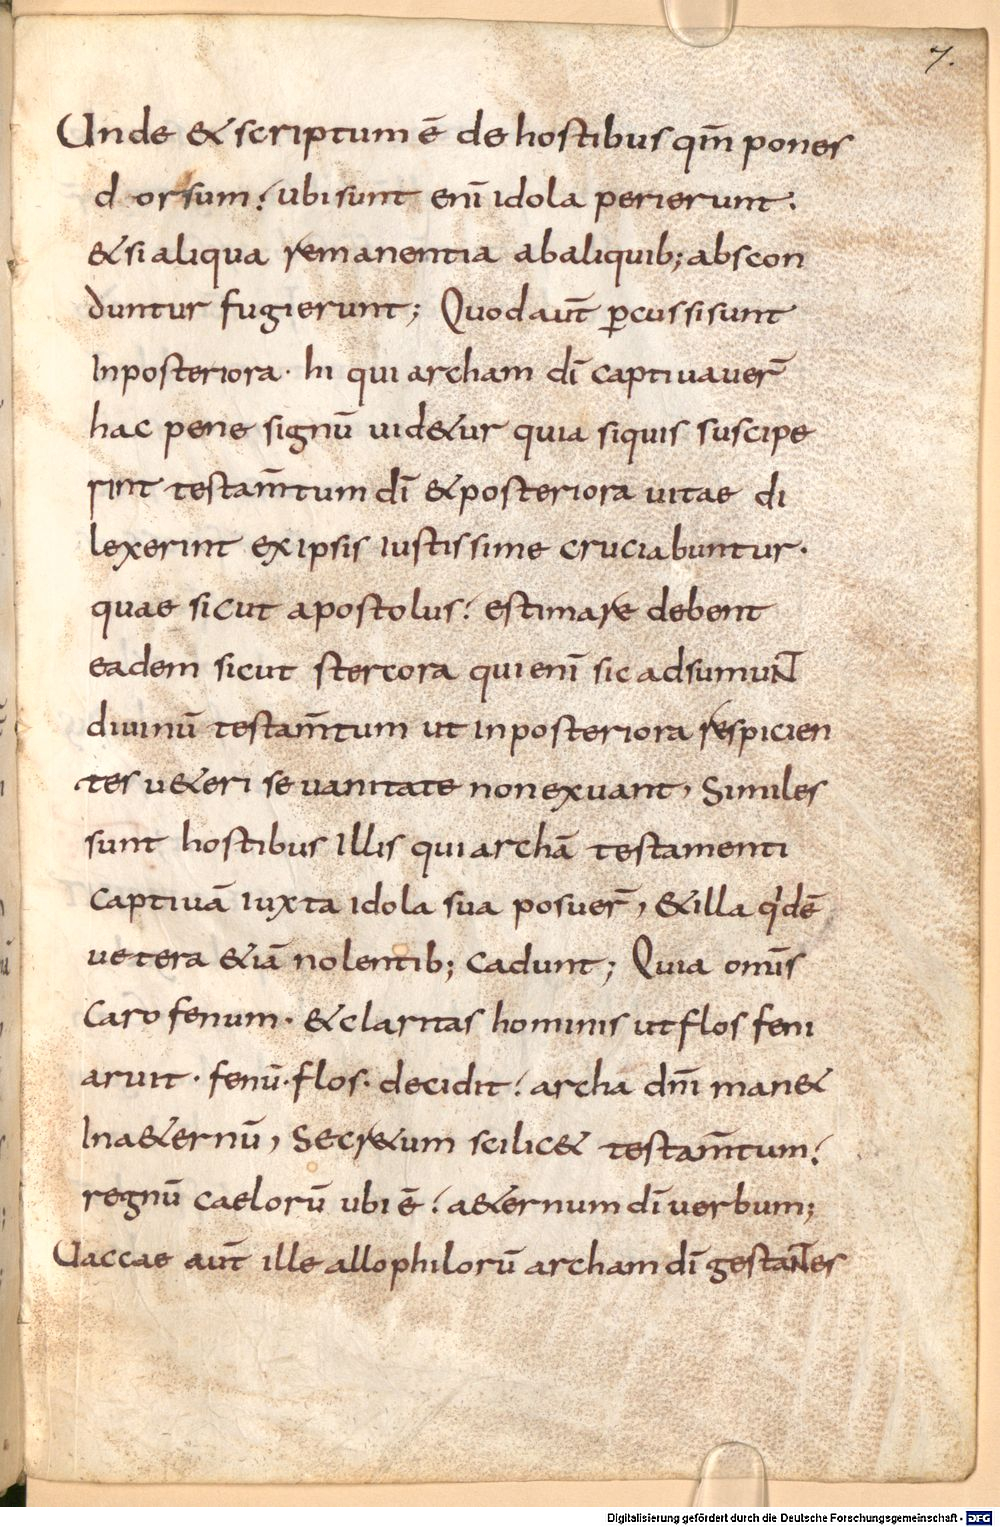 7.
Unde & scriptum ē de hostibus qm̄ pones
d orsum? ubi sunt eni̅ idola perierunt.
& si aliqua remanentia ab aliquib; abscon
duntur fugierunt; Quod aut̄ ꝑcussi sunt
In posteriora. hi qui archam dī captivauer̄
hac pene signū uid&ur quia siquis suscipe
rint testam̄tum dī & posteriora uitae di
lexerint ex ipsis iustissime cruciabuntur.
quae sicut apostolus? estimare debent
eadem sicut stercora qui eni̅ sic adsumuNT
diuinū testam̄tum ut in posteriora respicien
tes u&eri se uanitate non exuant, Similes
sunt hostibus illis qui archā testamenti
captiuā iuxta idola sua posuer̄, & illa qˈdē
uetera &iā nolentib; cadunt; Quia omīs
Caro fenum. & claritas hominis ut flos feni
aruit. fenū. flos. decidit? archa dn̄i man&
In a&ernū, Secr&um scilic& testam̄tum?
regnū caelorū ubi ē? a&ernum dī uerbum;
Uaccae aut̄ ille allophilorū archam dī gestaNTes
Digitalisierung gefördert durch die Deutsche Forschungsgemeinschaft - DFG